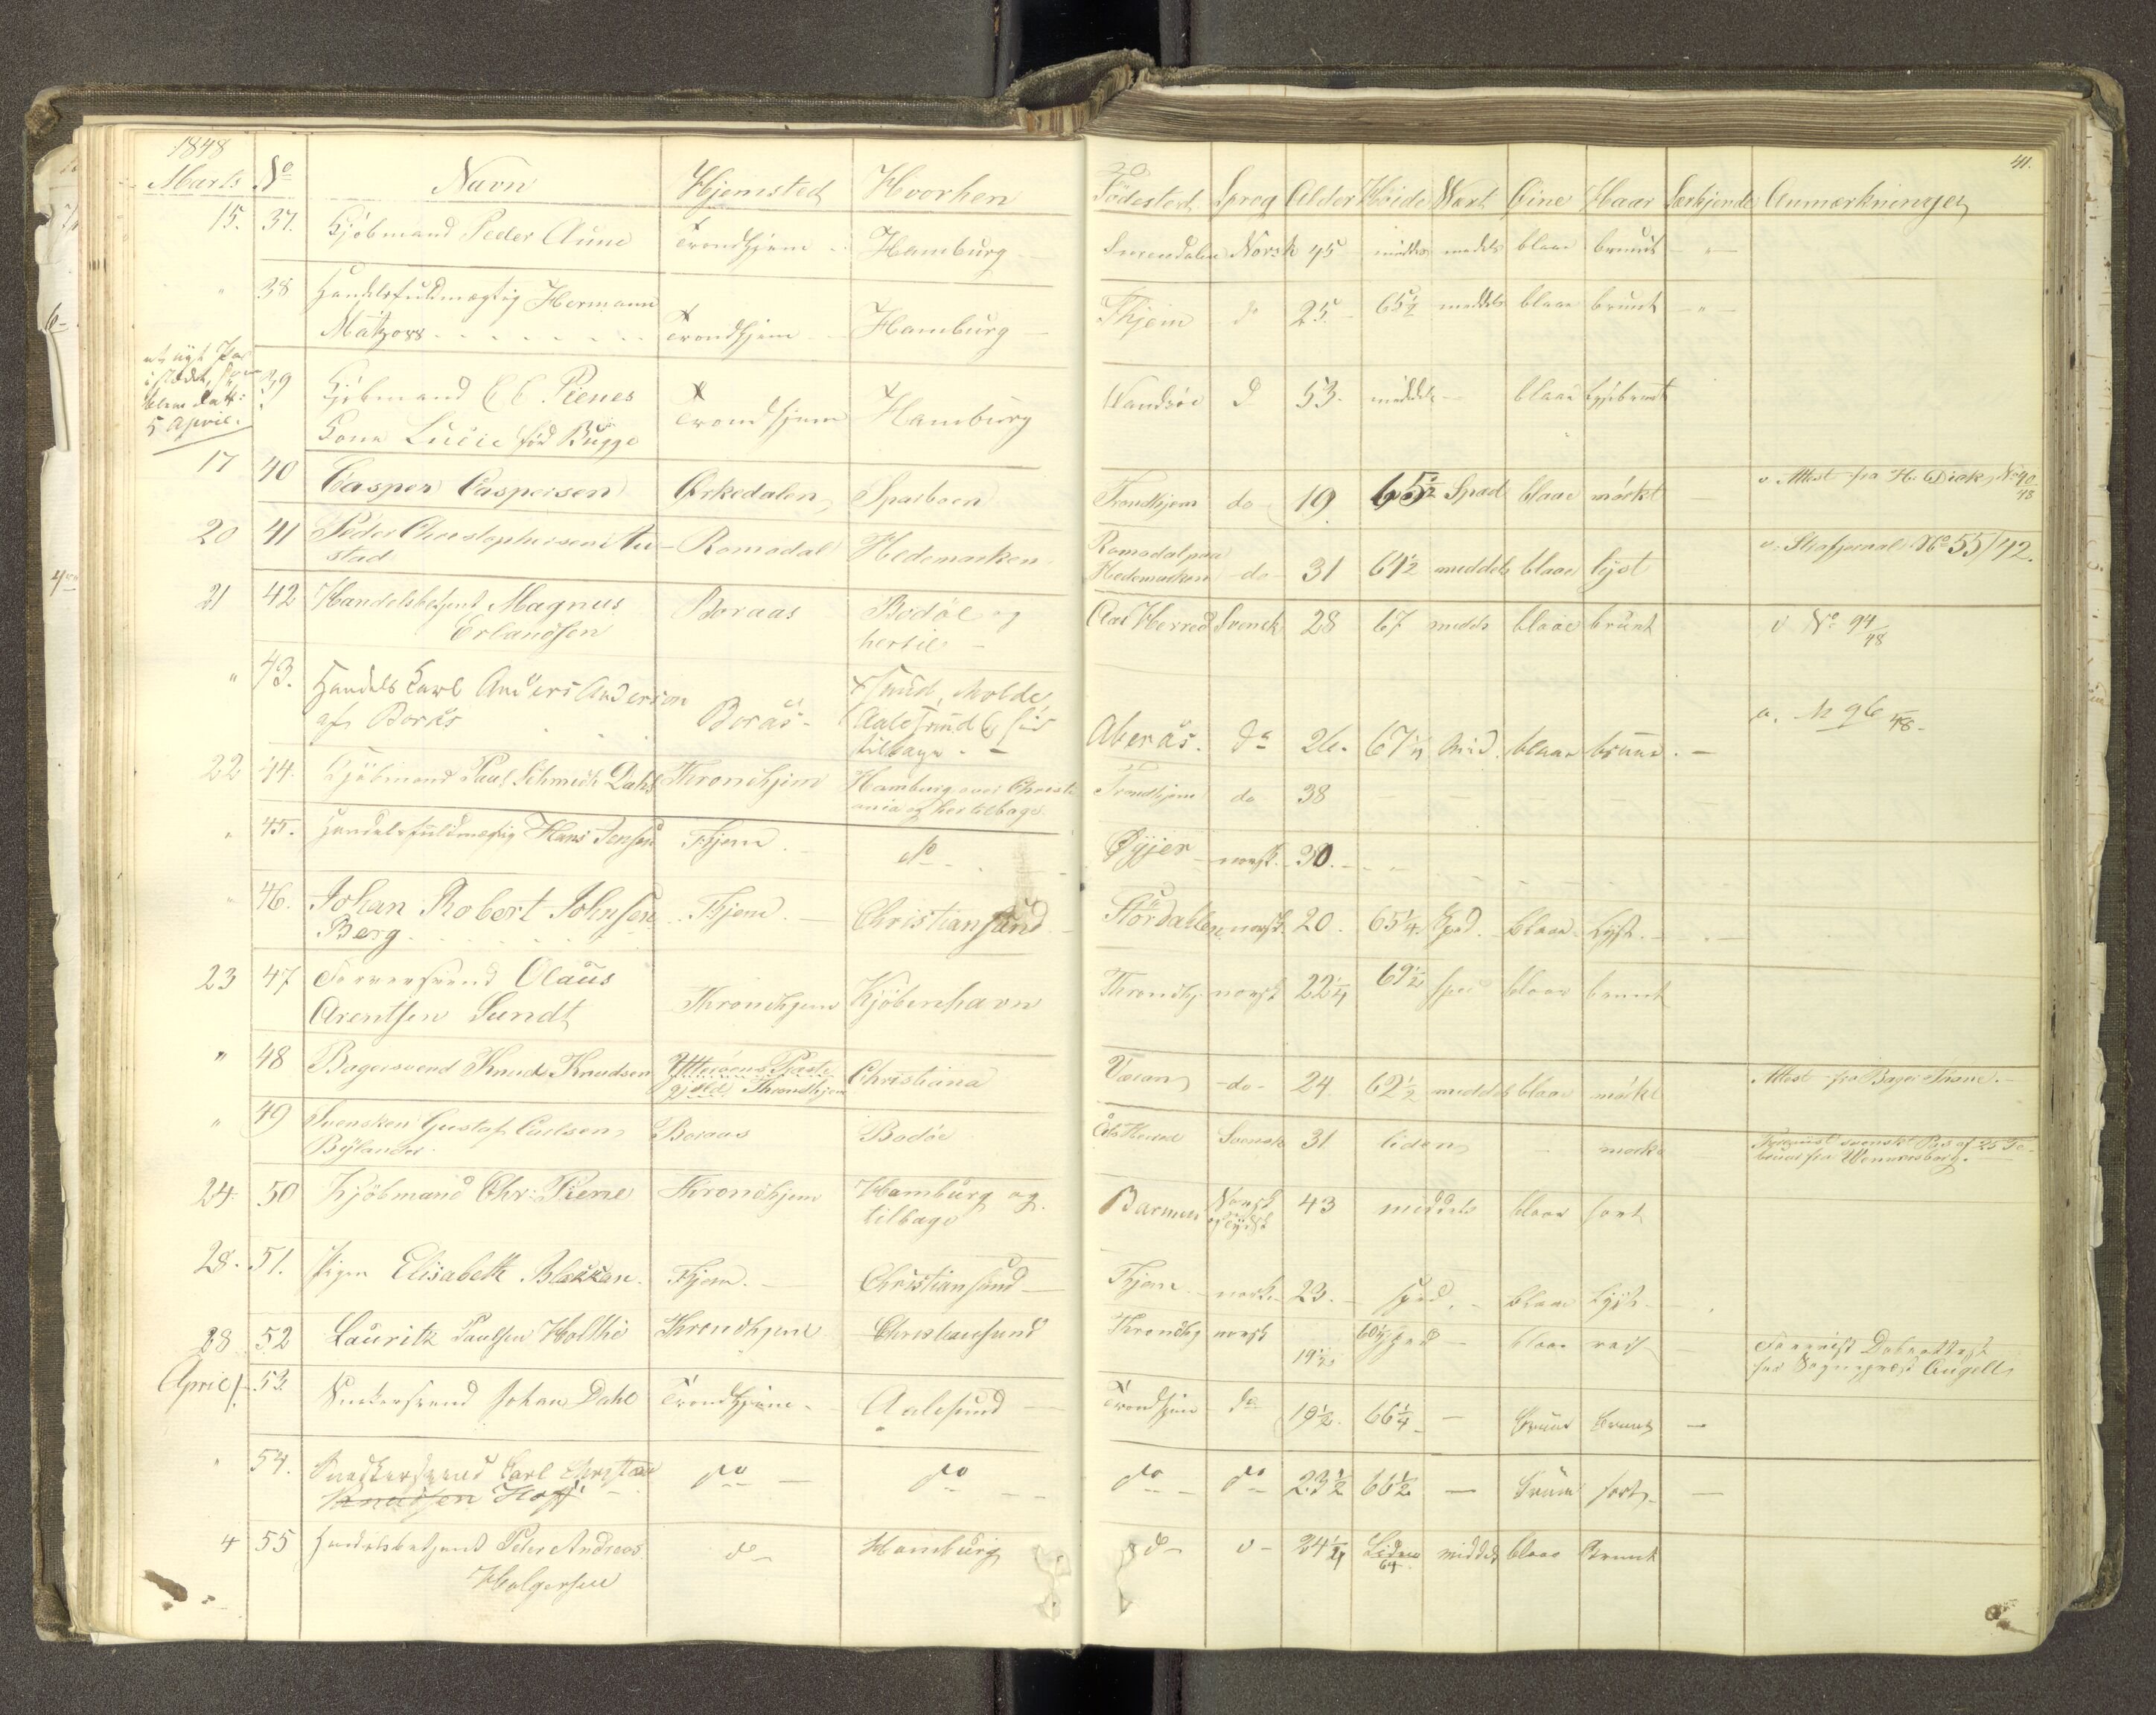 1848
Marts No Navn Hjemsted Hvorhen
Födested Sprog Alder Höide Væxt Öine Haar Særkjende Anmærkninger 41.
15. 37. Kjöbmand Peder Aune Trondhjem Hamburg
Norsk 45 middels meddels blaae bruunt
" 38 Handelsfuldmægtig Hermann
Mätzow Trondhjem Hamburg
Thjem do 25 65½ meddels blaae bruunt
5 April.
39 Kjöbmand Pienes
Kone Lucie född Bugge Trondhjem Hamburg
d 53. middels blaae Lysebrunt
17 40 Casper Caspersen Orkedalen Sparboen
Trondhjem do 19 65½ Spæd blaae mörkt v. Attest fra No 90/48
20 41 Peder Christophersen Au-
stad Romsdal Hedemarken
Romsdal paa
Hedemarken do 31 64½ meddels blaae lyst No 55/42.
21 42 Handelsbetjent Magnus
Erlandsen Boraas Bodöe og
hertil
Aas Herred Svensk 28 67 medels blaae brunt v No 94/48
" 43. Handels Karl Anders Anderson
af Borås Borås Xsund, Molde,
Aalesund & her
tilbage
Aberås. do 26. 67½ Mid. blaae bruune N 96/48
22 44. Kjöbmand Paul Schmidt Dahl Throndhjem Hamburg over Christi
ania og her tilbage
Trondhjem do 38
" 45. Handelsfuldmægtig Hans Jensen Thjem do
Öyjer norsk 30.
" 46. Johan Robert Johnsen
Berg Thjem. Christiansund
Stördahlen norsk 20. 65¼ Spæd. blaae Lyst.
23 47 Farversvend Olaus
Arentsen Sundt Throndhjem Kjöbenhavn
Throndhj. norsk 22¼ 69½ spæd blaae brunt
" 48 Bagersvend Knud Knudsen Ytteröens Præste
gjeld Throndhjem Christiana
do 24 62½ meddels blaae mörkt Attest fra Bager
" 49 Svensken Gustaf Carlsen
Bylander Boraas Bodöe
Ås Herred Svensk 31 liden mörke Forevist svenskt Pas af 25 Fe-
bruar fra Wennersborg.
24 50 Kjöbmand Chr. Piene Throndhjem Hamburg og
tilbage
Barmen Norsk
og tydsk 43 middels blaae sort
28. 51. Pigen Elisabeth Blakkan. Thjem. Christiansund
Thjem norsk 23. spæd. blaae Lyst
28 52 Lauritz Paulsen Holthe Throndhjem Christiansund
Throndhj norsk 19½ 60½ spæd blaae Forevist Döbeattest
fra Sognepræst Angell
April 1. 53. Snekersvend Johan Dahl Trondhjem Aalesund
Trondhjem do 19½ 66¼ bruune bruunt
" 54. Snekkersvend Carl Christian
Knudsen Hoff do do
do do 23½ 66½ bruune sort
4 55 Handelsbetjent Peter Andreas
Holgersen do Hamburg
do do 24¼ Liden
64 middels blaae Bruunt